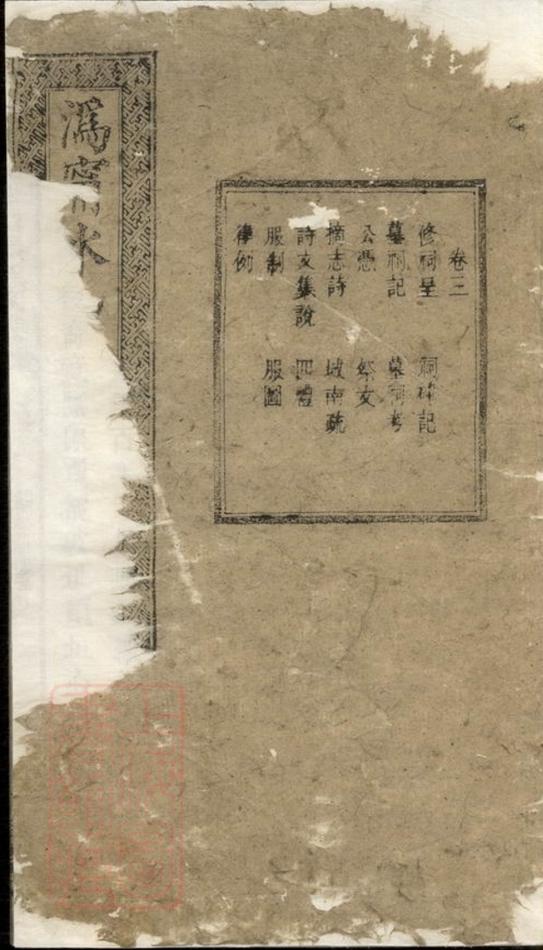 卷三
修祠呈 祠碑記
墓祠記 墓祠考
公憑 祭文
摘志詩 城南疏
詩文集說 四禮
服制 服圖
律例
溈寧